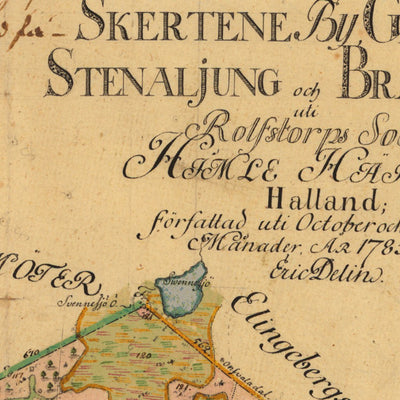 SKERTENE By, G
STENALJUNG och BRA
uti
Rolfstorps Soc
HIMLE HÄR
Halland;
författad uti October och
Månader, År 1783
Eric Delin.
MÖTER
Svennesjö
Svennesjö Ö.
Elingeberg
610
120